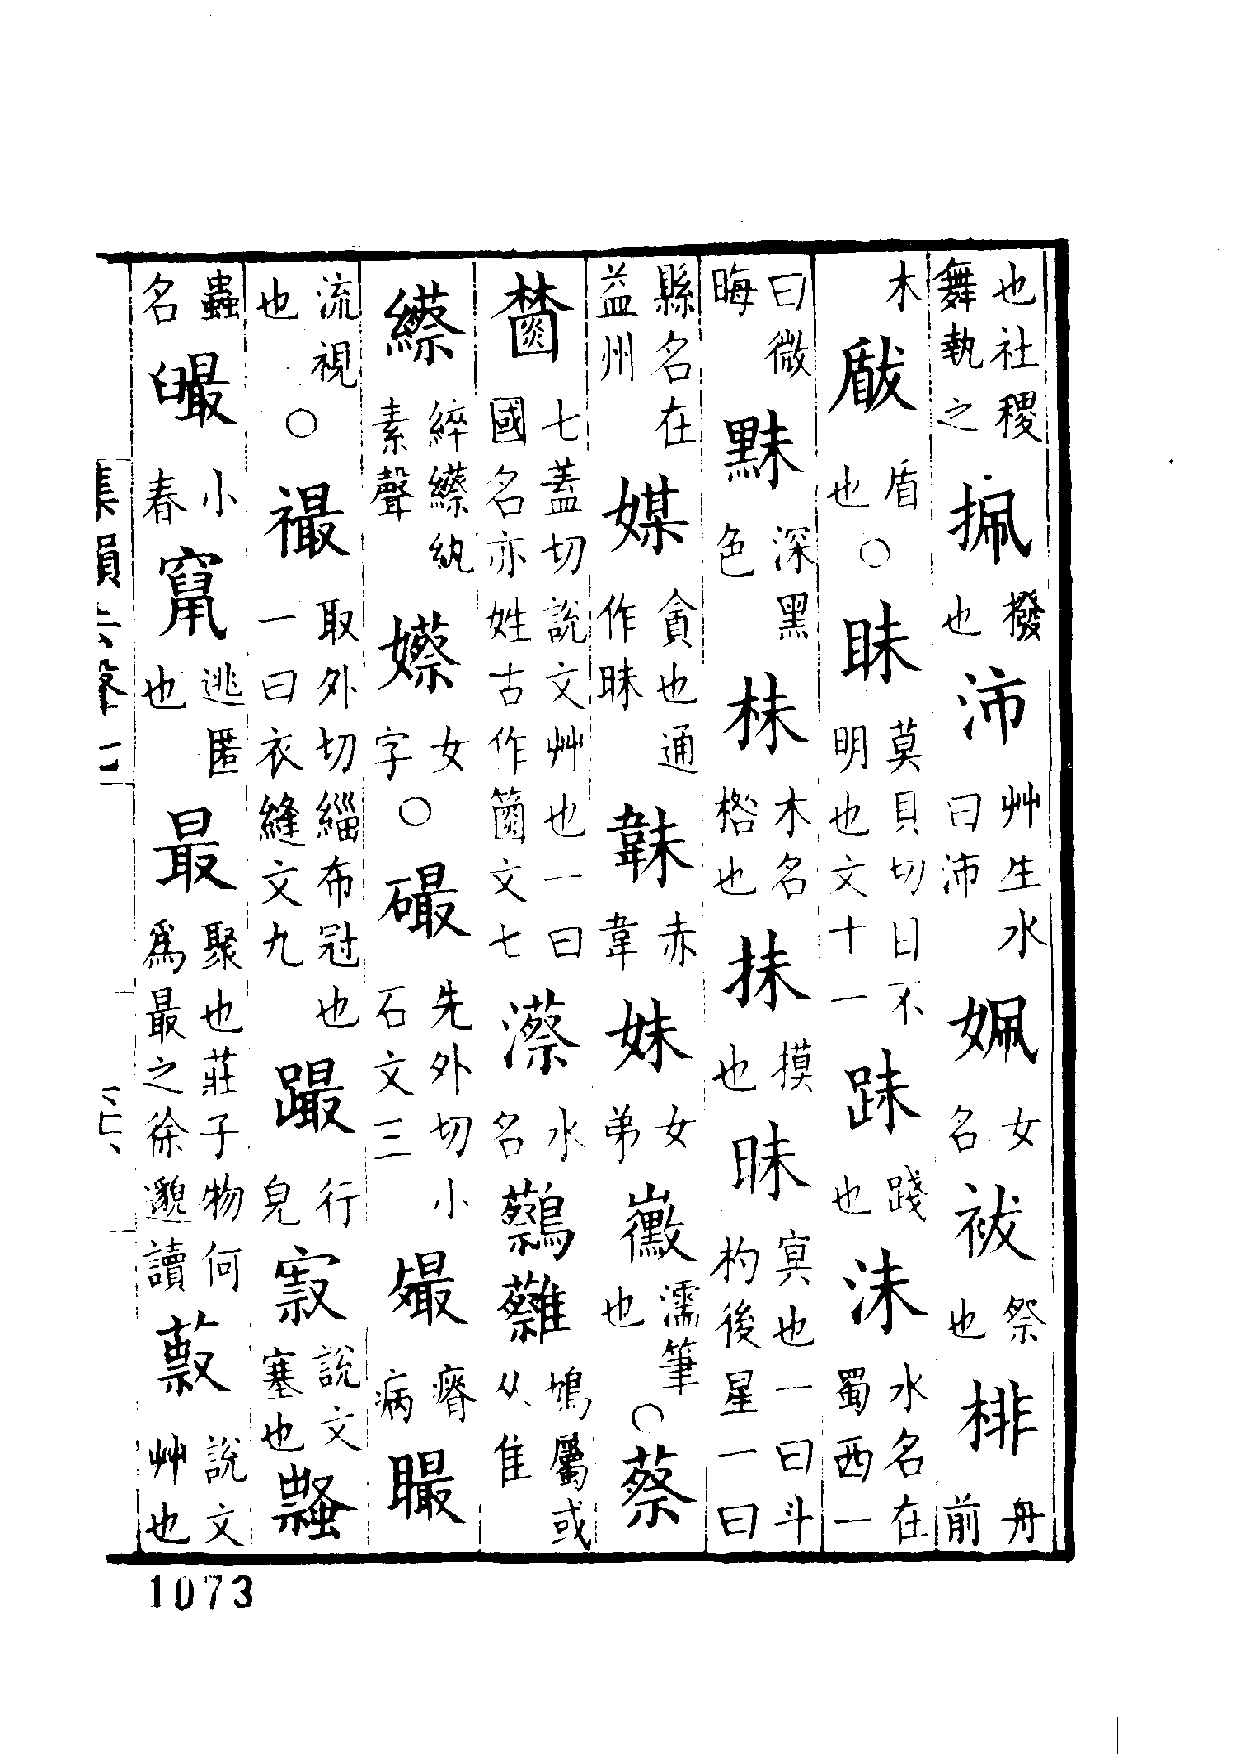 也社稷舞執之㧊撥也沛艸生水曰沛姵女名祓祭也棑舟前
木瞂盾也○眛莫貝切目不明也文十一跊踐也沬水名在蜀西一
曰微晦䵢深黑色枺木名樒也抹摸也昧冥也一曰斗杓後星一曰
縣名在益州媒貪也通作眛韎赤韋妹女弟黴濡筆也○蔡
七蓋切說文艸也一曰國名亦姓古作文七瀿水名鷍雜鴆屬或从隹
縩綷縩紈素聲㜗女字○礣先外切小石文三㝡瘠病䁮
流視也○襊取外切緇布冠也一曰衣縫文九躦行皃㝮說文塞也
蟲名小舂竄逃匿也最聚也莊子物何爲最之徐邈讀蔌說文艸也
集韻去聲七
1073